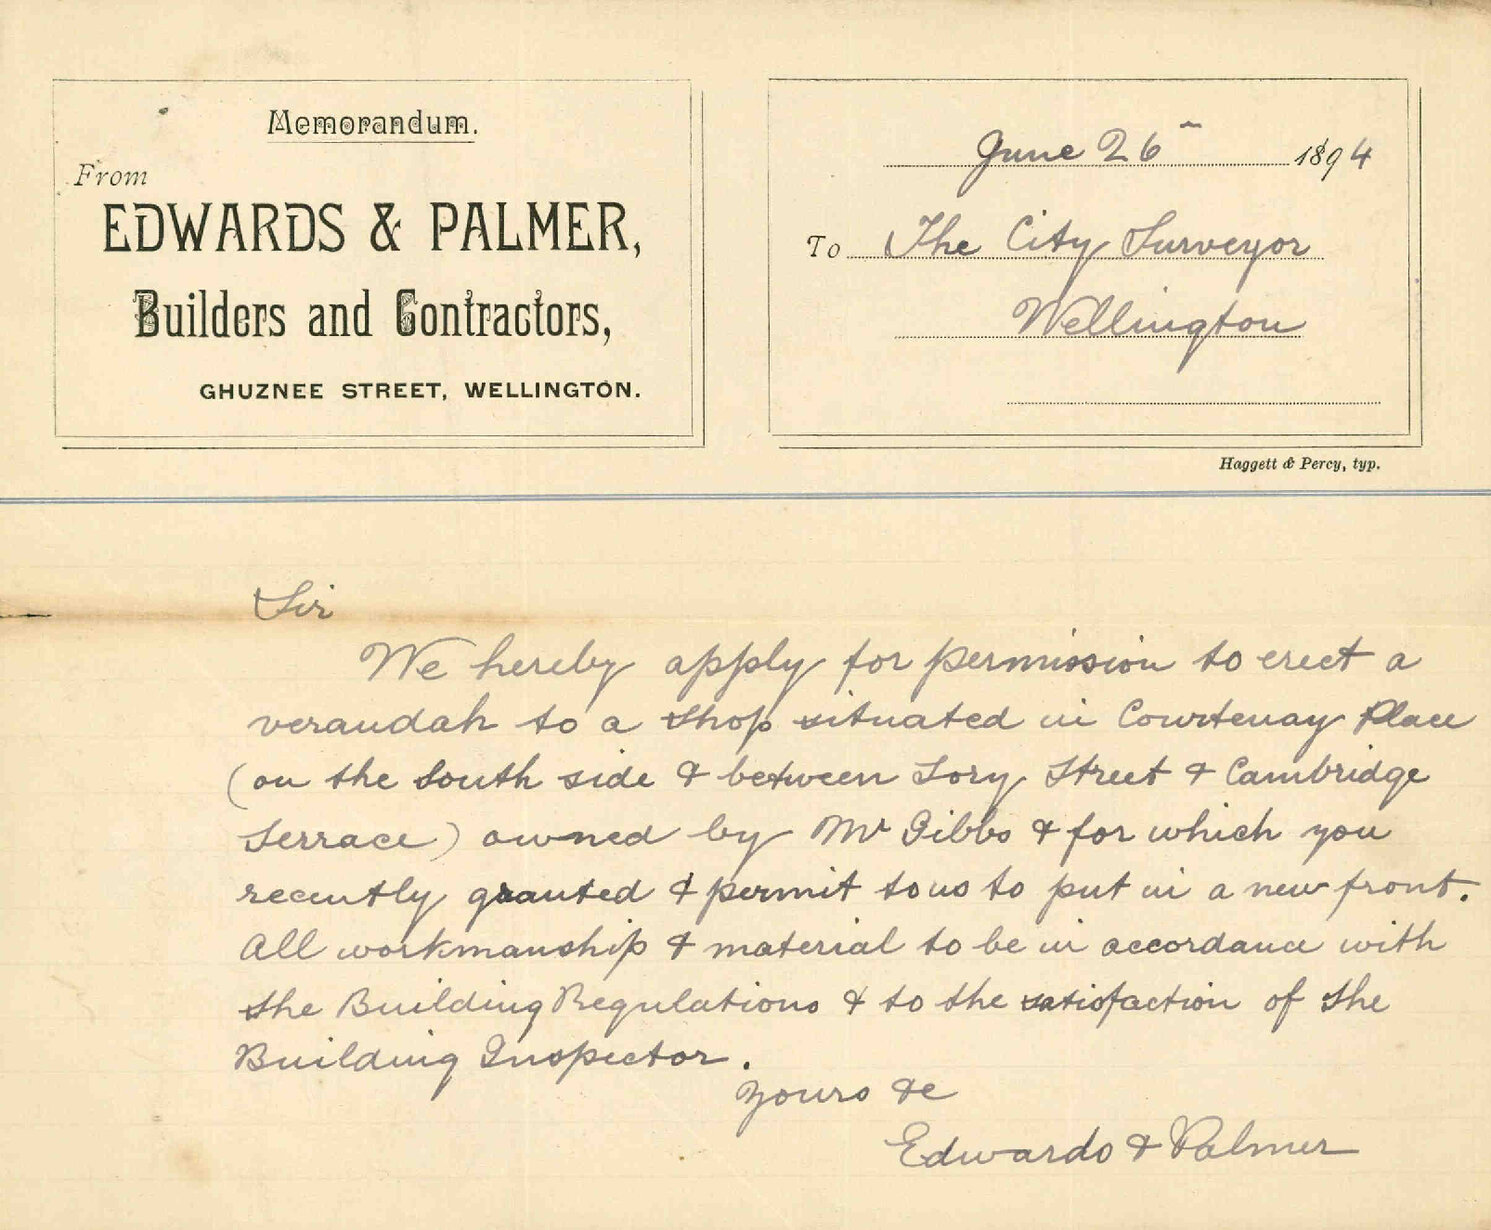 Memorandum.
From
EDWARDS & PALMER,
Builders and Contractors,
GHUZNEE STREET, WELLINGTON.
June 26th 1894
To The City Surveyor
Wellington
Haggett & Percy, typ.
Sir
We hereby apply for permission to erect a
verandah to a shop situated in Courtenay Place
(on the South side & between Tory Street & Cambridge
Terrace) owned by Mr Gibbs & for which you
recently granted & permit to us to put in a new front.
All workmanship & material to be in accordance with
the Building Regulations & to the satisfaction of the
Building Inspector.
Yours &c
Edwards & Palmer